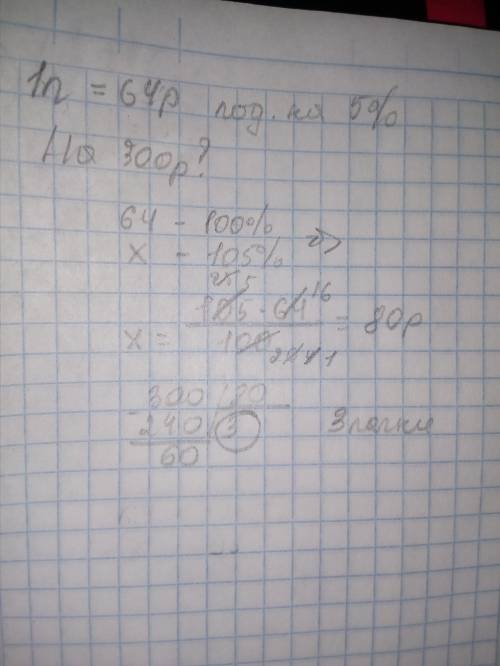 1п = 64р под. на 5%
На 300р?
64 - 100%
x - 105% =>
25 5
x = 105 · 64 16 / 100 20 4 1 = 80р
300 | 80
240 | 3
60
3 пачки